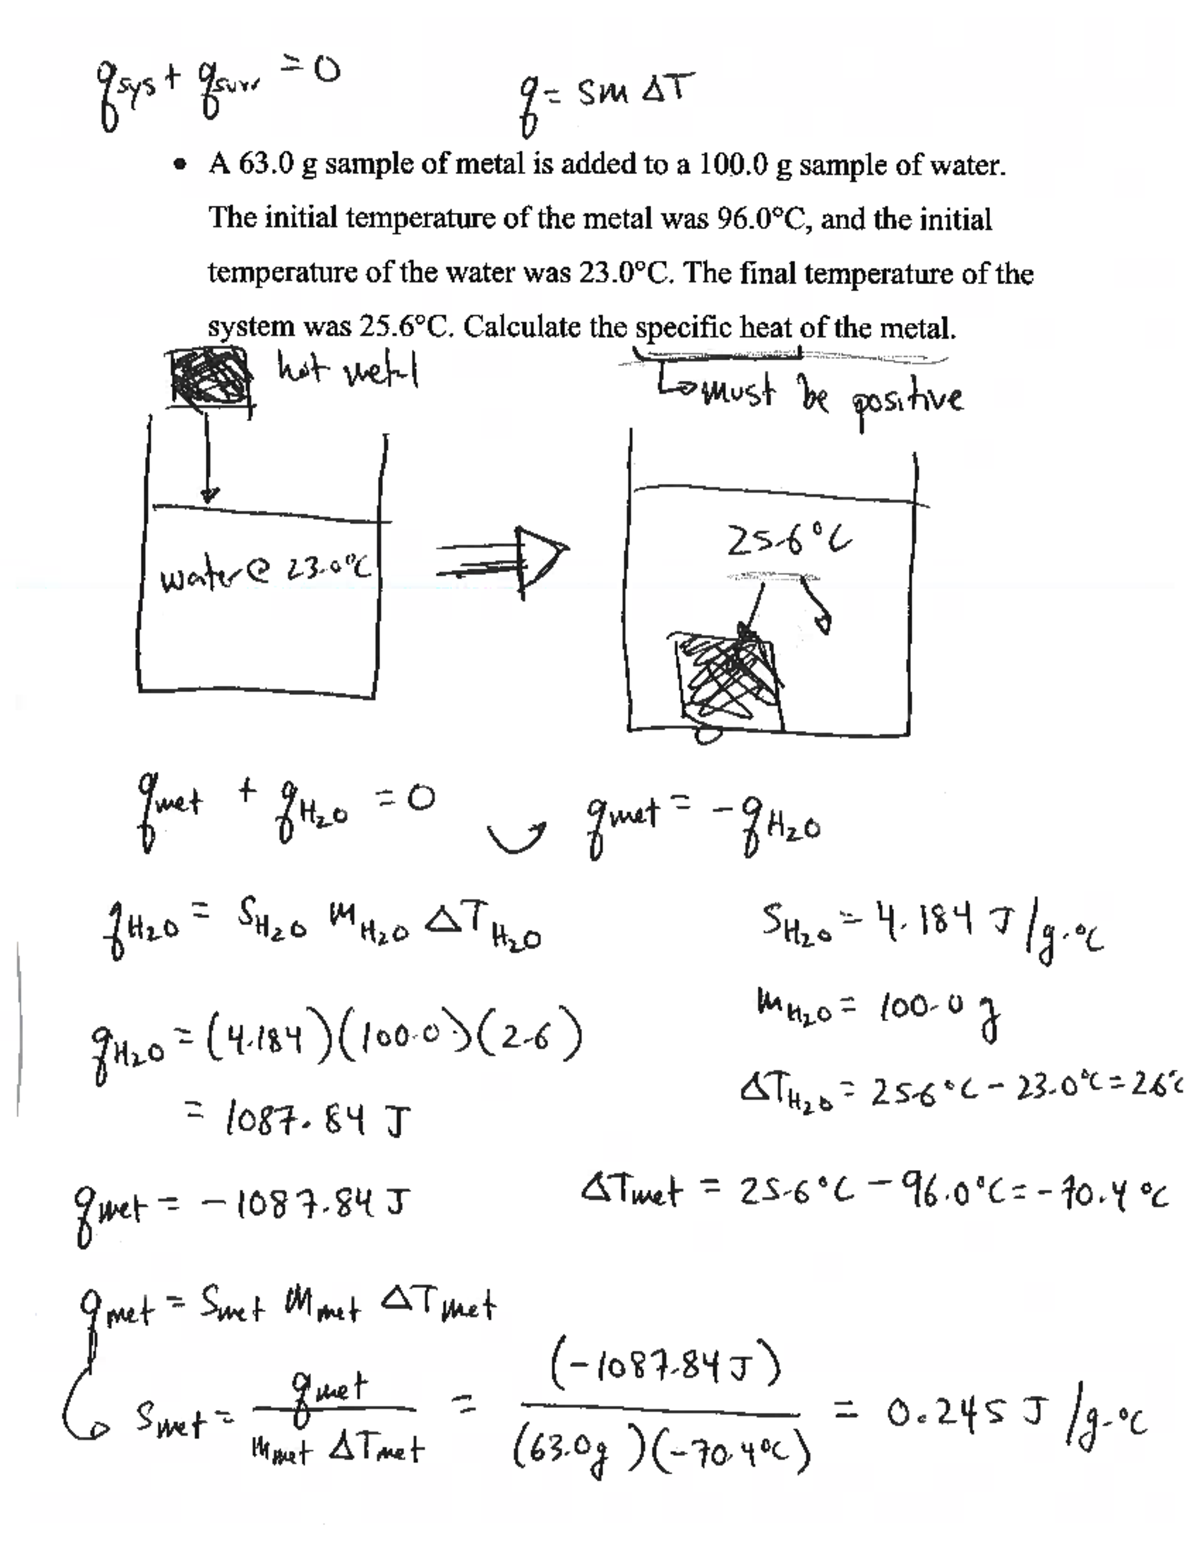 q_sys + q_surr = 0
q = sm ΔT
• A 63.0 g sample of metal is added to a 100.0 g sample of water.
The initial temperature of the metal was 96.0°C, and the initial
temperature of the water was 23.0°C. The final temperature of the
system was 25.6°C. Calculate the specific heat of the metal.
hot metal
↳ must be positive
water @ 23.0°C
25.6°C
q_met + q_H₂O = 0
q_met = -q_H₂O
q_H₂O = S_H₂O m_H₂O ΔT_H₂O
S_H₂O = 4.184 J/g·°C
m_H₂O = 100.0 g
q_H₂O = (4.184)(100.0)(2.6)
ΔT_H₂O = 25.6°C - 23.0°C = 2.6°C
= 1087.84 J
q_met = -1087.84 J
ΔT_met = 25.6°C - 96.0°C = -70.4°C
q_met = S_met m_met ΔT_met
S_met = q_met / m_met ΔT_met = (-1087.84 J) / (63.0g)(-70.4°C) = 0.245 J/g·°C